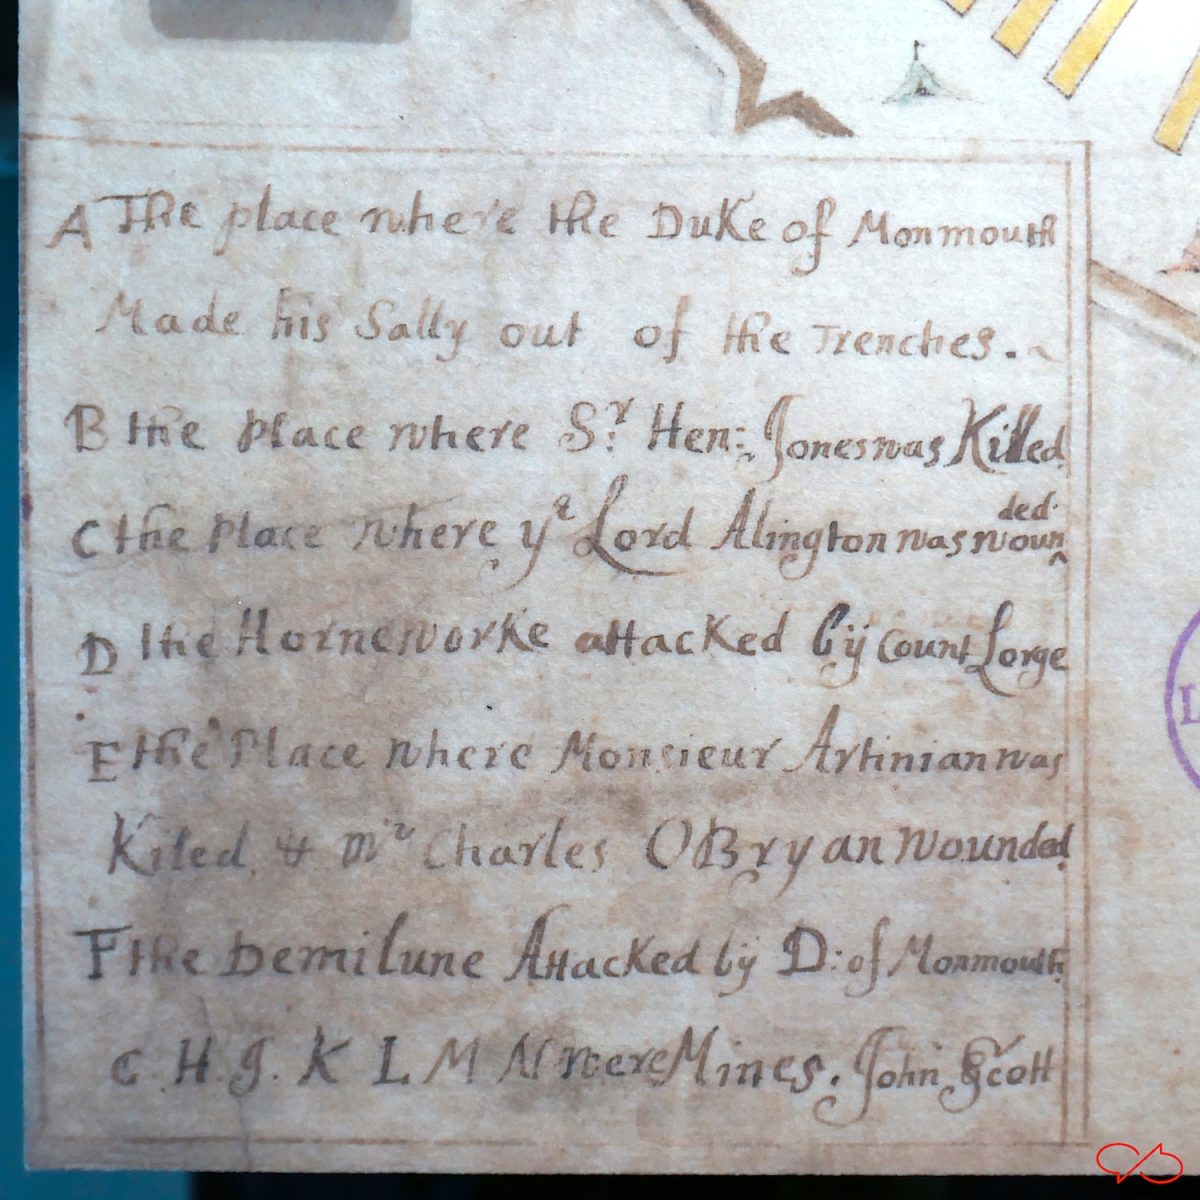 A The place where the Duke of Monmouth
Made his Sally out of the Trenches.
B the Place where Sr: Hen: Jones was Killed
C the Place where ye Lord Alington was wounded
D the Horneworke attacked bÿ Count Lorge
E the Place where Monsieur Artinian was
Kiled & mr Charles OBryan wounded
F the Demilune Attacked bÿ D: of Monmouth
G H J. K L M N were Mines. John Scott
L